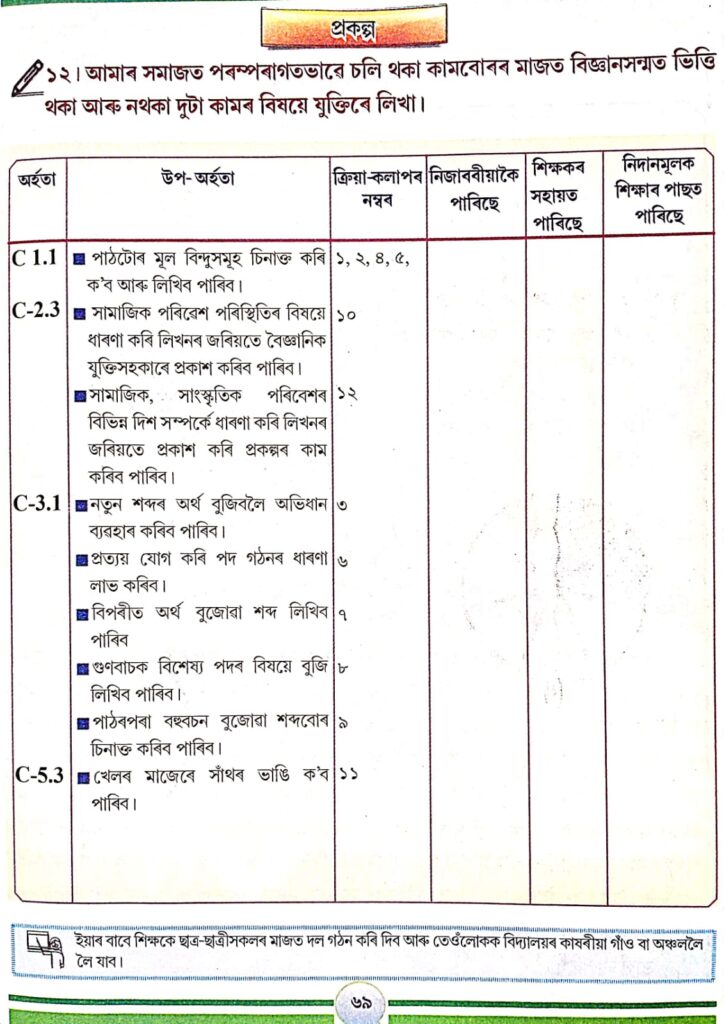 প্ৰকল্প
১২। আমাৰ সমাজত পৰম্পৰাগতভাৱে চলি থকা কামবোৰৰ মাজত বিজ্ঞানসন্মত ভিত্তি
থকা আৰু নথকা দুটা কামৰ বিষয়ে যুক্তিৰে লিখা।
অৰ্হতা
উপ- অৰ্হতা
ক্ৰিয়া-কলাপৰ
নম্বৰ
নিজাববীয়াকৈ
পাৰিছে
শিক্ষকৰ
সহায়ত
পাৰিছে
নিদানমূলক
শিক্ষাৰ পাছত
পাৰিছে
C 1.1 পাঠটোৰ মূল বিন্দুসমূহ চিনাক্ত কৰি ১, ২, ৪, ৫,
ক'ব আৰু লিখিব পাৰিব।
C-2.3 সামাজিক পৰিৱেশ পৰিস্থিতিৰ বিষয়ে ১০
ধাৰণা কৰি লিখনৰ জৰিয়তে বৈজ্ঞানিক
যুক্তিসহকাৰে প্ৰকাশ কৰিব পাৰিব।
সামাজিক, সাংস্কৃতিক পৰিবেশৰ ১২
বিভিন্ন দিশ সম্পৰ্কে ধাৰণা কৰি লিখনৰ
জৰিয়তে প্ৰকাশ কৰি প্ৰকল্পৰ কাম
কৰিব পাৰিব।
C-3.1 নতুন শব্দৰ অৰ্থ বুজিবলৈ অভিধান ৩
ব্যৱহাৰ কৰিব পাৰিব।
প্ৰত্যয় যোগ কৰি পদ গঠনৰ ধাৰণা ৬
লাভ কৰিব।
বিপৰীত অৰ্থ বুজোৱা শব্দ লিখিব ৭
পাৰিব
গুণবাচক বিশেষ্য পদৰ বিষয়ে বুজি ৮
লিখিব পাৰিব।
পাঠৰপৰা বহুবচন বুজোৱা শব্দবোৰ ৯
চিনাক্ত কৰিব পাৰিব।
C-5.3 খেলৰ মাজেৰে সাঁথৰ ভাঙি ক'ব ১১
পাৰিব।
ইয়াৰ বাবে শিক্ষকে ছাত্ৰ-ছাত্ৰীসকলৰ মাজত দল গঠন কৰি দিব আৰু তেওঁলোকক বিদ্যালয়ৰ কাষৰীয়া গাঁও বা অঞ্চললৈ
লৈ যাব।
৬৯